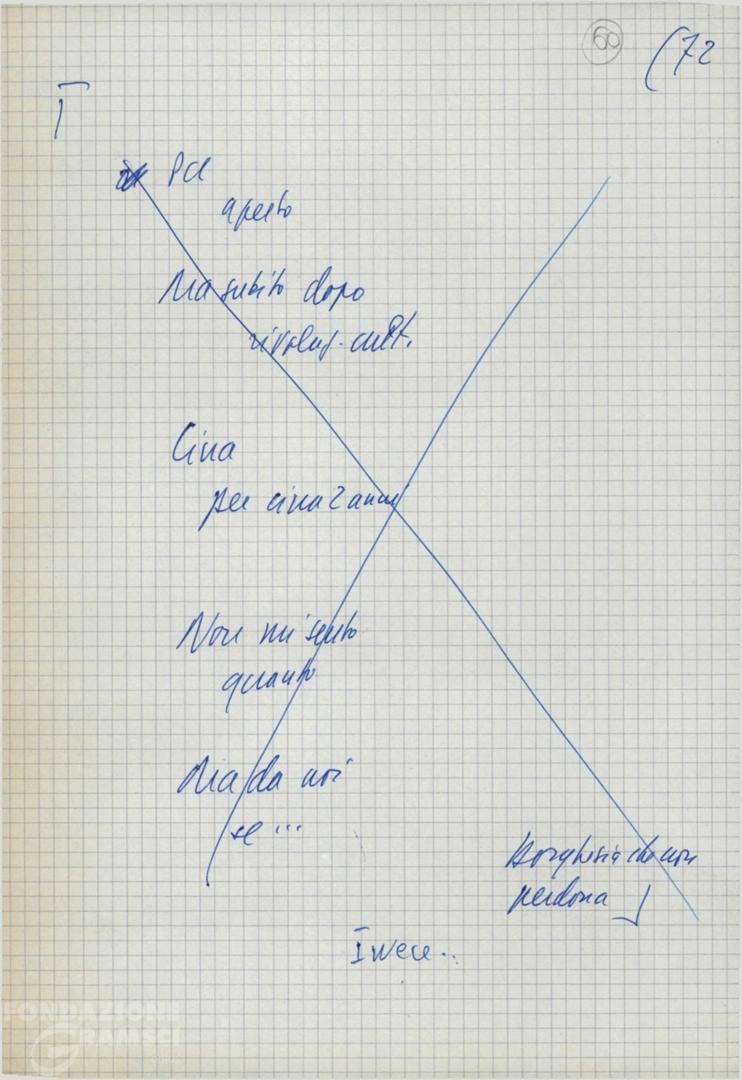 60
(72
PCI
aperto
Ma subito dopo
rivoluz. cult.
Cina
per circa 2 anni
Non mi sento
quanto
Ma da noi
se ...
Borghesia che non
perdona
Invece..
FONDAZIONE
GRAMSCI